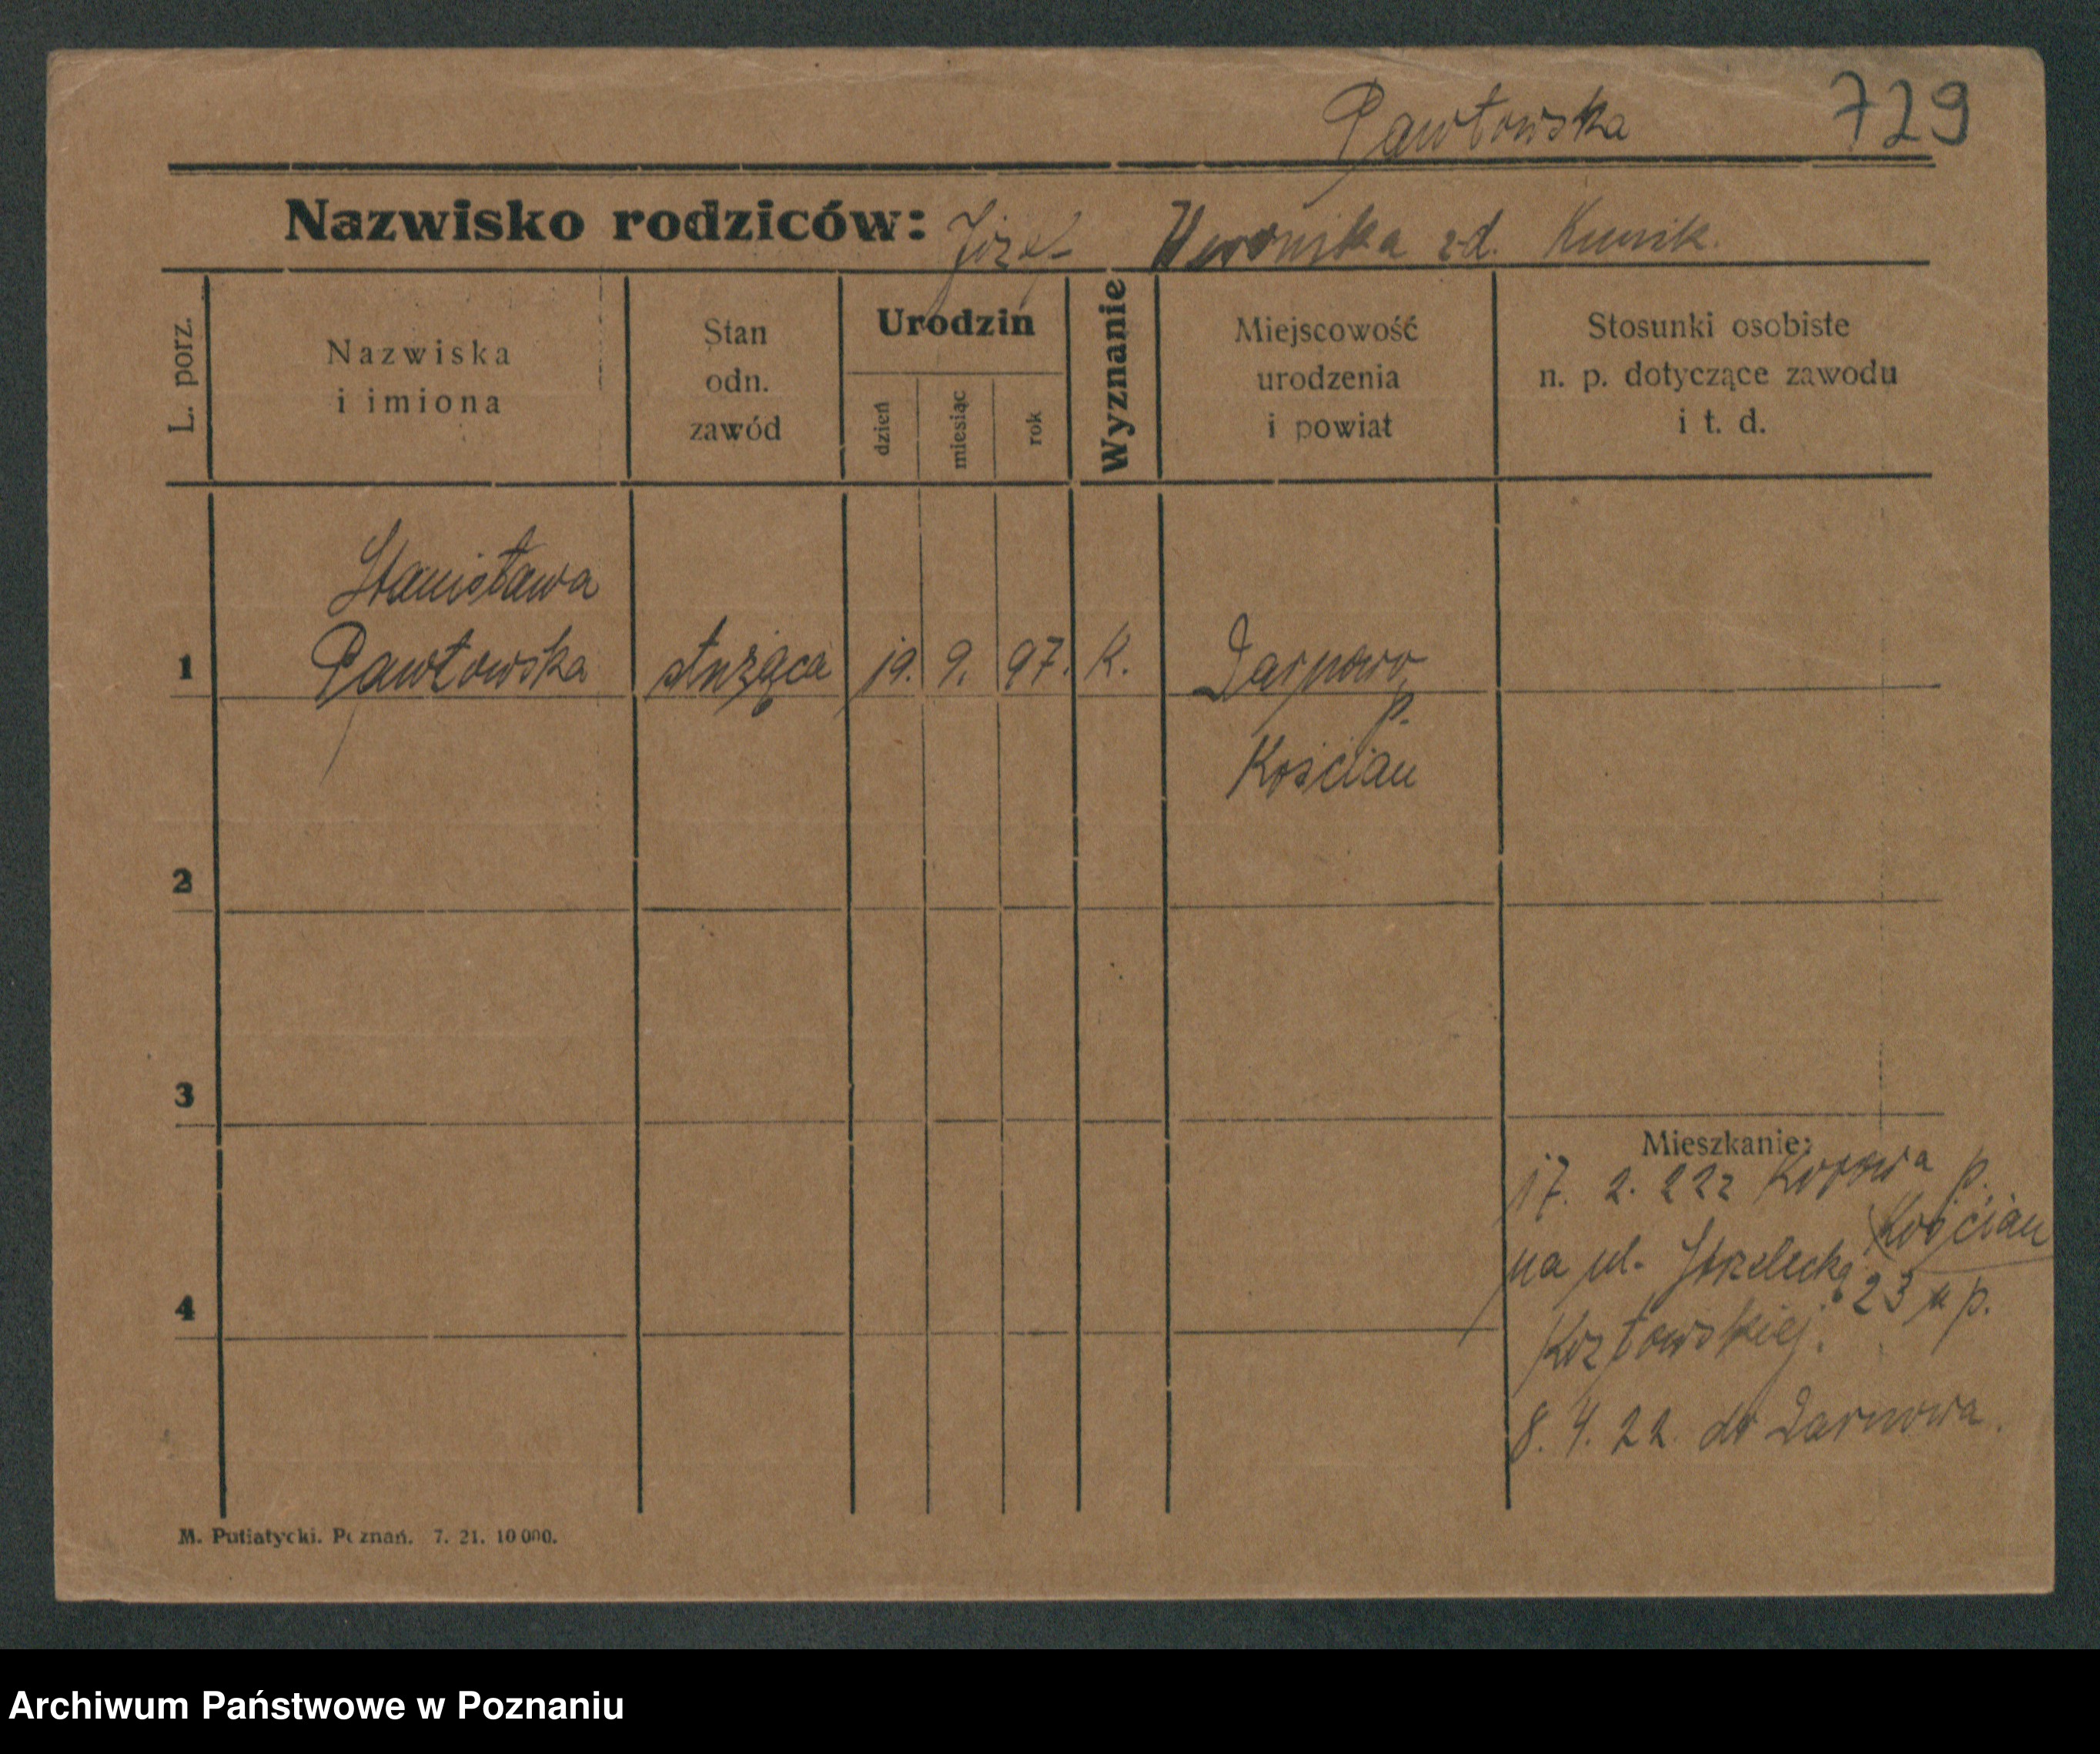 Pawłowska 729
Nazwisko rodziców: Józef Weronika zd.
L. porz.
Nazwiska
i imiona
Stan
odn.
zawód
Urodzin
dzień
miesiąc
rok
Wyznanie
Miejscowość
urodzenia
i powiat
Stosunki osobiste
n. p. dotyczące zawodu
i t. d.
Stanisława
1 Pawłowska służąca 19. 9. 97. k. Darnowo
p.
Kościan
2
3
Mieszkanie:
17. 2. 22 z p.
Kościan
na ul. Strzelecką 23 u p.
4
Kozłowskiej.
8. 4. 22. do Darnowa.
M. Putiatycki. Poznań. 7. 21. 10 000.
Archiwum Państwowe w Poznaniu